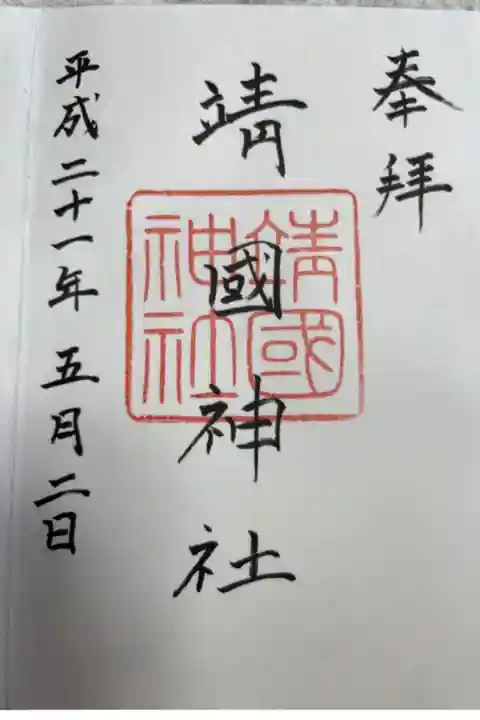 奉拝
靖國神社
靖國
神社
平成二十一年五月二日